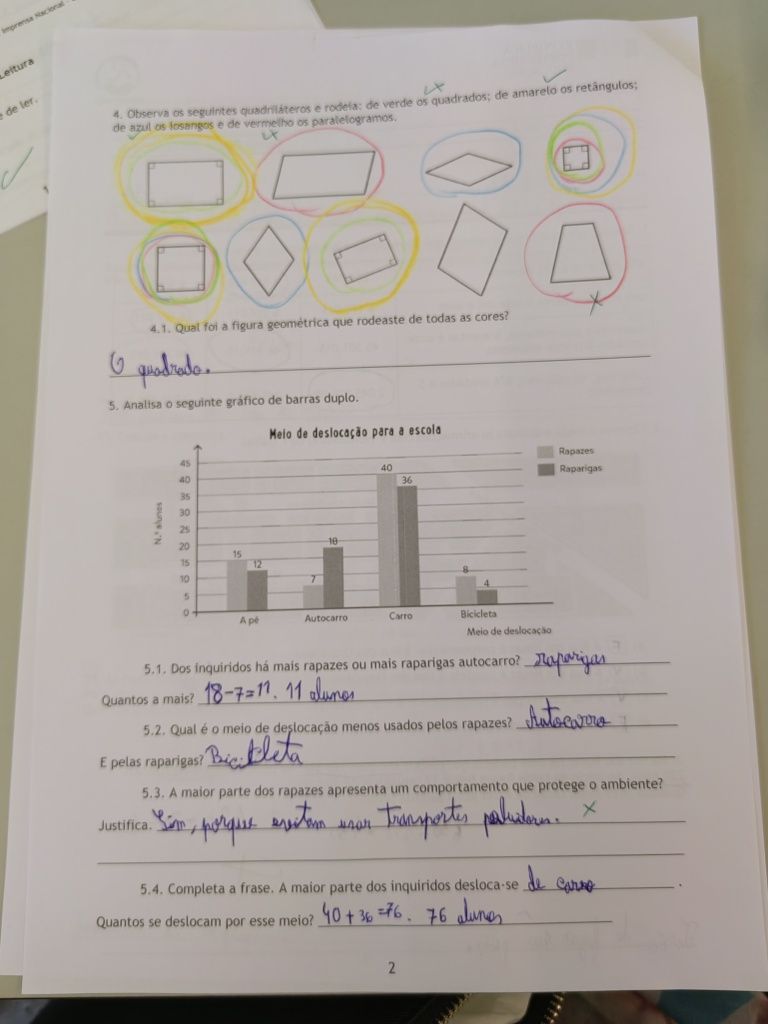 Imprensa Nacional -
Leitura
de ler.
4. Observa os seguintes quadriláteros e rodeia: de verde os quadrados; de amarelo os retângulos;
de azul os losangos e de vermelho os paralelogramos.
4.1. Qual foi a figura geométrica que rodeaste de todas as cores?
O quadrado.
5. Analisa o seguinte gráfico de barras duplo.
Meio de deslocação para a escola
Rapazes
Raparigas
N.º alunos
45
40
35
30
25
20
15
10
5
0
15
12
7
18
40
36
8
4
A pé
Autocarro
Carro
Bicicleta
Meio de deslocação
5.1. Dos inquiridos há mais rapazes ou mais raparigas autocarro? raparigas
Quantos a mais? 18-7=11. 11 alunos
5.2. Qual é o meio de deslocação menos usados pelos rapazes? Autocarro
E pelas raparigas? Bicicleta
5.3. A maior parte dos rapazes apresenta um comportamento que protege o ambiente?
Justifica. Sim, porque evitam usar transportes
5.4. Completa a frase. A maior parte dos inquiridos desloca-se de carro.
Quantos se deslocam por esse meio? 40+36=76. 76 alunos
2